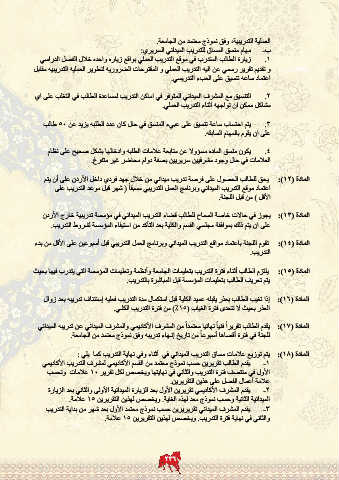 العملية التدريبية، وفق نموذج معتمد من الجامعة.
ب- مهام منسق المساق للتدريب الميداني السريري:
١. زيارة الطالب المتدرب في موقع التدريب العملي بواقع زيارة واحدة خلال الفصل الدراسي
و تقديم تقرير رسمي عن آلية التدريب العملي و المقترحات الضرورية لتطوير العملية التدريبية مقابل
اعتماد ساعة تنسيق على العبء التدريسي.
٢. التنسيق مع المشرف الميداني المتوفر في أماكن التدريب لمساعدة الطالب في التغلب على أي
مشاكل ممكن ان تواجهه أثناء التدريب العملي.
٣. يتم احتساب ساعة تنسيق على عبء المنسق في حال كان عدد الطلبة يزيد عن ٥٠ طالب
على أن يقوم بالمهام السابقة.
٤. يكون منسق المادة مسؤولا عن متابعة علامات الطلبة وإدخالها بشكل صحيح على نظام
العلامات في حال وجود مشرفين سريريين بصفة دوام محاضر غير متفرغ.
المادة (١٢): يحق الطالب الحصول على فرصة تدريب ميداني من خلال جهد فردي داخل الأردن على أن يتم
اعتماد موقع التدريب الميداني وبرنامج العمل التدريبي مسبقاً ( شهر قبل موعد التدريب على
الأقل ) من قبل اللجنة.
المادة (١٣): يجوز في حالات خاصة السماح للطالب قضاء التدريب الميداني في مؤسسة تدريبية خارج الأردن
على أن يتم ذلك بموافقة مجلسي القسم والكلية بعد التأكد من استيفاء المؤسسة لشروط التدريب.
المادة (١٤): تقوم اللجنة باعتماد مواقع التدريب الميداني وبرنامج العمل التدريبي قبل أسبوعين على الأقل من بدء
التدريب.
المادة (١٥): يلتزم الطالب أثناء فترة التدريب بتعليمات الجامعة وأنظمة وتعليمات المؤسسة التي يتدرب فيها بحيث
يتم تعريف الطالب بتعليمات المؤسسة قبل المباشرة بالتدريب.
المادة (١٦): إذا تغيب الطالب بعذر يقبله عميد الكلية قبل استكمال مدة التدريب فعليه إستئناف تدريبه بعد زوال
العذر بحيث لا تتعدى فترة الغياب (١٥٪) من فترة التدريب الكلي.
المادة (١٧): يقدم الطالب تقريراً فنياً نهائياً معتمداً من المشرف الأكاديمي والمشرف الميداني عن تدريبه الميداني
للجنة في فترة أقصاها أسبوعاً من تاريخ إنهاء تدريبه وفق نموذج معتمد من الجامعة.
المادة (١٨): يتم توزيع علامات مساق التدريب الميداني في أثناء وفي نهاية التدريب كما يلي :
١- يقدم الطالب تقريرين حسب نموذج معتمد من القسم الأكاديمي لمشرف التدريب الأكاديمي
الأول في منتصف فترة التدريب والثاني في نهايتها ويخصص لكل تقرير ١٠ علامات وتحسب
علامة أعمال الفصل على هذين التقريرين.
٢- يقدم المشرف الأكاديمي تقريرين الأول بعد الزيارة الميدانية الأولى والثاني بعد الزيارة
الميدانية الثانية وحسب نموذج معد لهذه الغاية. ويخصص لهذين التقريرين ١٥ علامة.
٣- يقدم المشرف الميداني تقريرين حسب نموذج معتمد الأول بعد شهر من بداية التدريب
والثاني في نهاية فترة التدريب. ويخصص لهذين التقريرين ١٥ علامة.